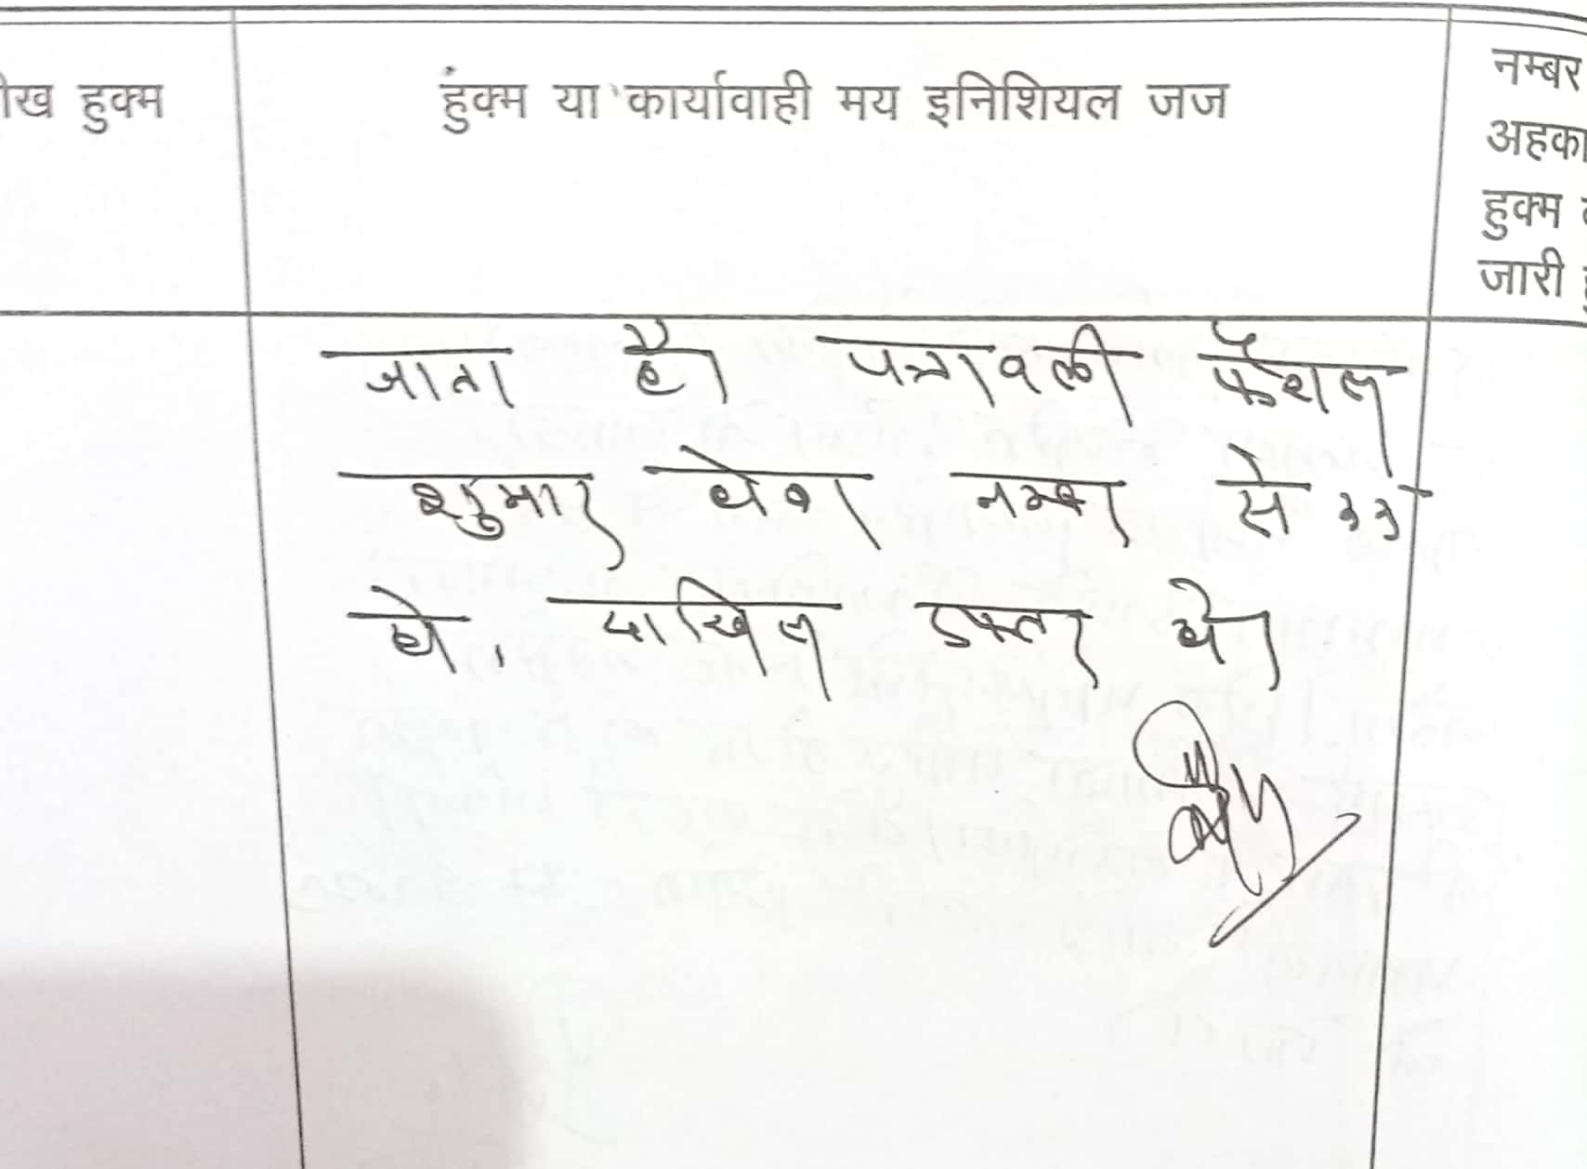 ीख हुक्म
हुंक्म या कार्यावाही मय इनिशियल जज
नम्बर
अहका
हुक्म
जारी
जाता है। पत्रावली फैशल
शुमार होकर नम्बर से कम
हो, दाखिल दफ्तर हो।